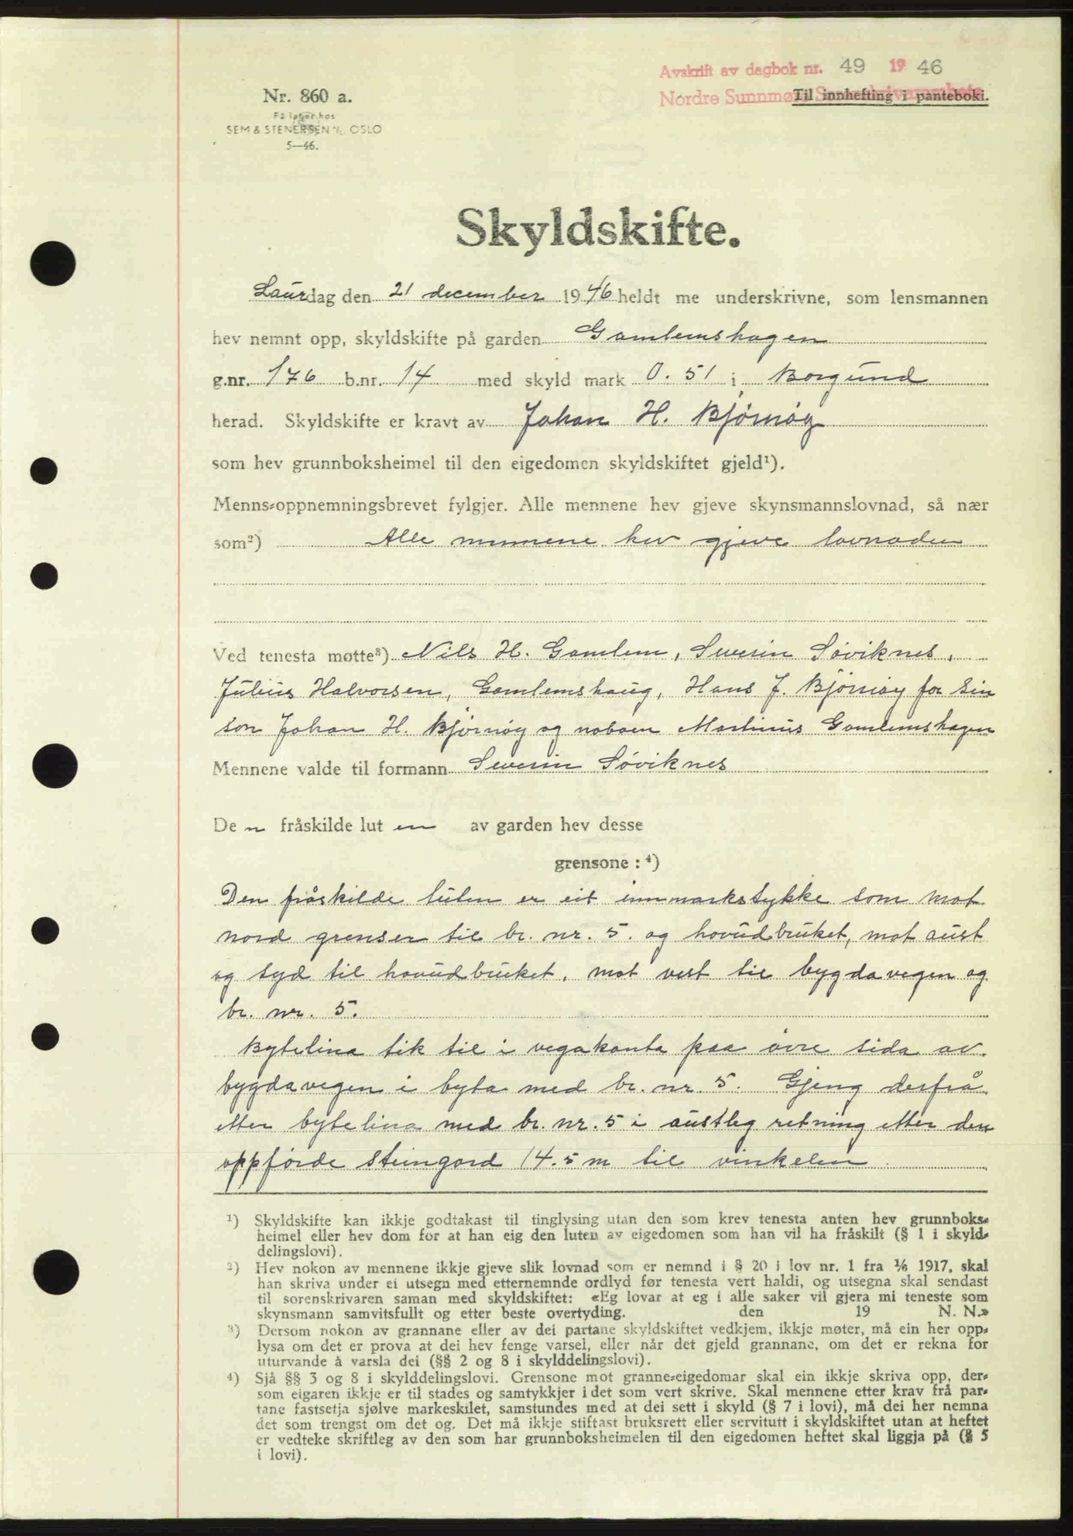 Avskrift av dagbok nr. 49 1946
Nordre Sunnmøre Sorenskriverembete
Til innhefting i panteboki.
Nr. 860 a.
Få lager hos
SEM & STENERSEN A/S OSLO
5—46.
Skyldskifte.
Laurdag den 21 december 1946 heldt me underskrivne, som lensmannen
hev nemnt opp, skyldskifte på garden Gamlemshagen
g.nr. 176 b.nr. 14 med skyld mark 0.51 i Borgund
herad. Skyldskifte er kravt av Johan H. Bjørnøy
som hev grunnboksheimel til den eigedomen skyldskiftet gjeld¹).
Menns-oppnemningsbrevet fylgjer. Alle mennene hev gjeve skynsmannslovnad, så nær
som²) Alle mennene hev gjeve lovnaden
Ved tenesta møtte³) Nils H. Gamlem, Severin Søviknes,
Julius Halvorsen, Gamlemshaug, Hans J. Bjørnøy for sin
son Johan H. Bjørnøy og naboen Martinus Gamlemshagen
Mennene valde til formann Severin Søviknes
Den fråskilde luten av garden hev desse
grensone : ⁴)
Den fråskilde luten er eit innmarkstykke som mot
nord grenser til br. nr. 5. og hovudbruket, mot aust
og syd til hovudbruket, mot vest til bygdavegen og
br. nr. 5.
Bytelina tek til i vegakanta paa øvre sida av
bygdavegen i byta med br. nr 5. Gjeng derfrå
etter bytelina med br. nr. 5 i austleg retning etter den
oppførde steingard 14.5 m til vinkelen
¹) Skyldskifte kan ikkje godtakast til tinglysing utan den som krev tenesta anten hev grunnboks-
heimel eller hev dom for at han eig den luten av eigedomen som han vil ha fråskilt (§ 1 i skyld-
delingslovi).
²) Hev nokon av mennene ikkje gjeve slik lovnad som er nemnd i § 20 i lov nr. 1 fra 1/6 1917, skal
han skriva under ei utsegn med etternemnde ordlyd før tenesta vert haldi, og utsegna skal sendast
til sorenskrivaren saman med skyldskiftet: «Eg lovar at eg i alle saker vil gjera mi teneste som
skynsmann samvitsfullt og etter beste overtyding. den 19 N. N.»
³) Dersom nokon av grannane eller av dei partane skyldskiftet vedkjem, ikkje møter, må ein her opp-
lysa om det er prova at dei hev fenge varsel, eller når det gjeld grannane, om det er rekna for
uturvande å varsla dei (§§ 2 og 8 i skylddelingslovi).
⁴) Sjå §§ 3 og 8 i skylddelingslovi. Grensone mot granne-eigedomar skal ein ikkje skriva opp, der-
som eigaren ikkje er til stades og samtykkjer i det som vert skrive. Skal mennene etter krav frå par-
tane fastsetja sjølve markeskilet, samstundes med at dei sett i skyld (§ 7 i lovi), må dei her nemna
det som trengst om det og. Det må ikkje stiftast bruksrett eller servitutt i skyldskiftet utan at heftet
er vedteke skriftleg av den som har grunnboksheimelen til den eigedomen heftet skal liggja på (§ 5
i lovi).